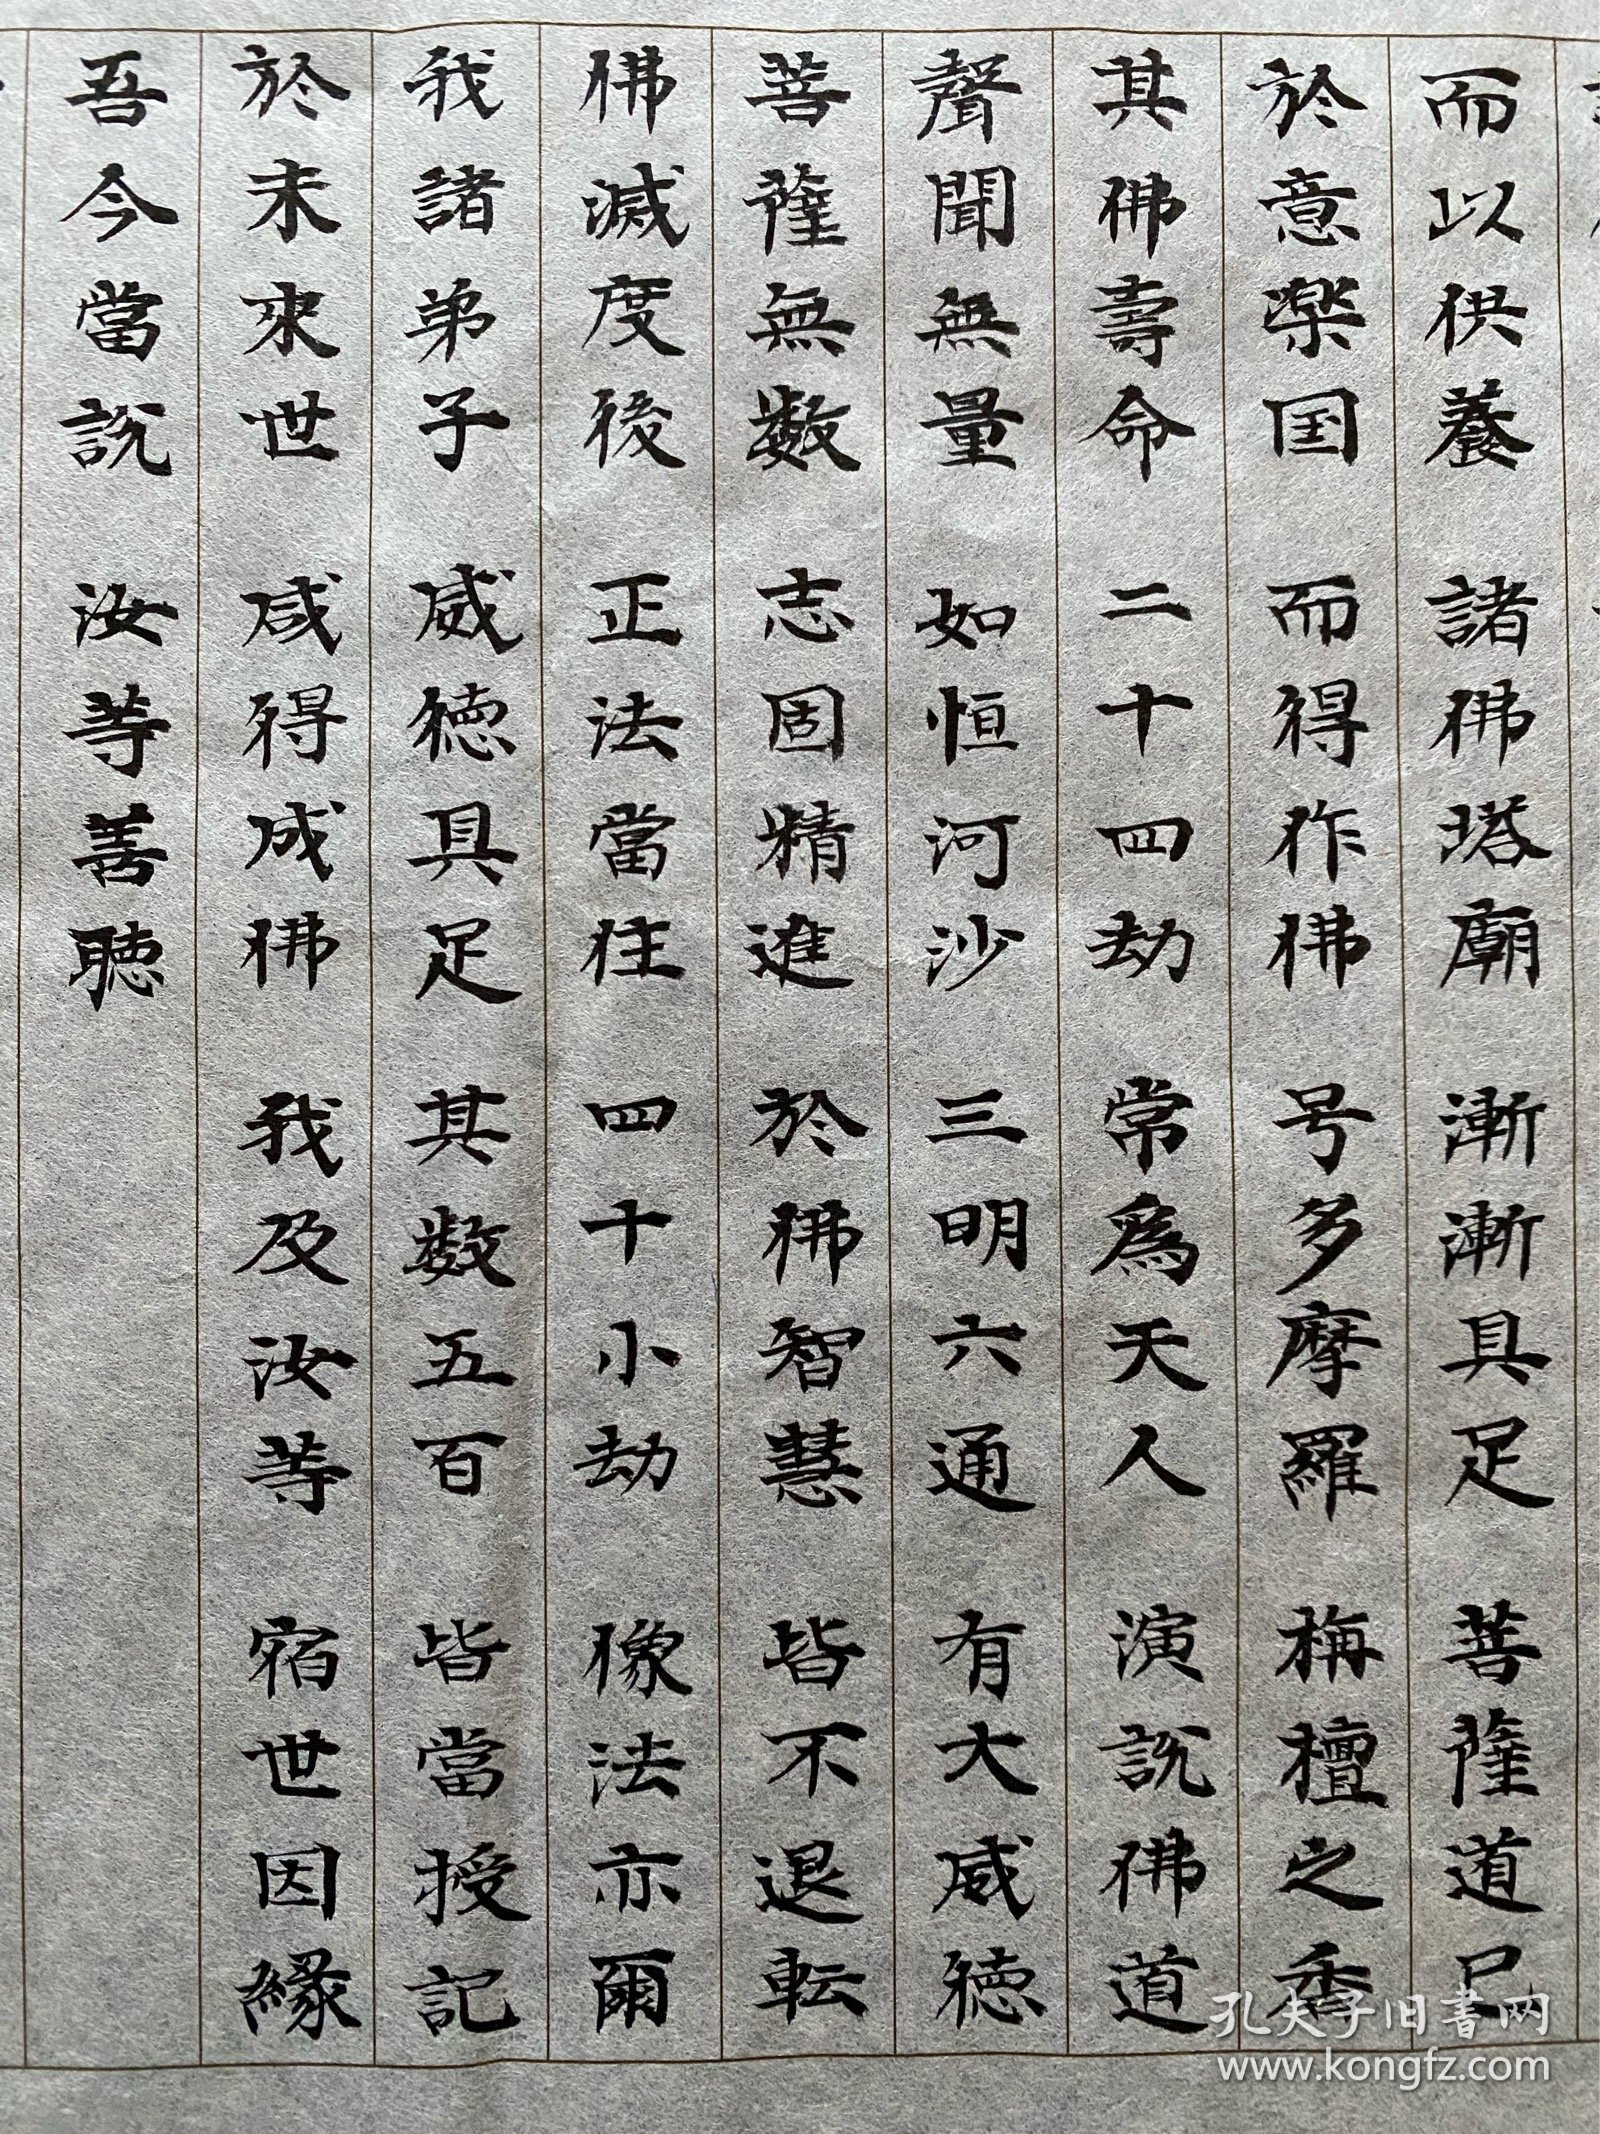 而以供養 諸佛塔廟 漸漸具足 菩薩道已
於意楽国 而得作佛 号多摩羅 栴檀之香
其佛壽命 二十四劫 常為天人 演説佛道
聲聞無量 如恒河沙 三明六通 有大威徳
菩薩無數 志固精進 於佛智慧 皆不退転
佛滅度後 正法當住 四十小劫 像法亦爾
我諸弟子 威徳具足 其數五百 皆當授記
於未來世 咸得成佛 我及汝等 宿世因緣
吾今當説 汝等善聴
孔夫子旧书网
www.kongfz.com